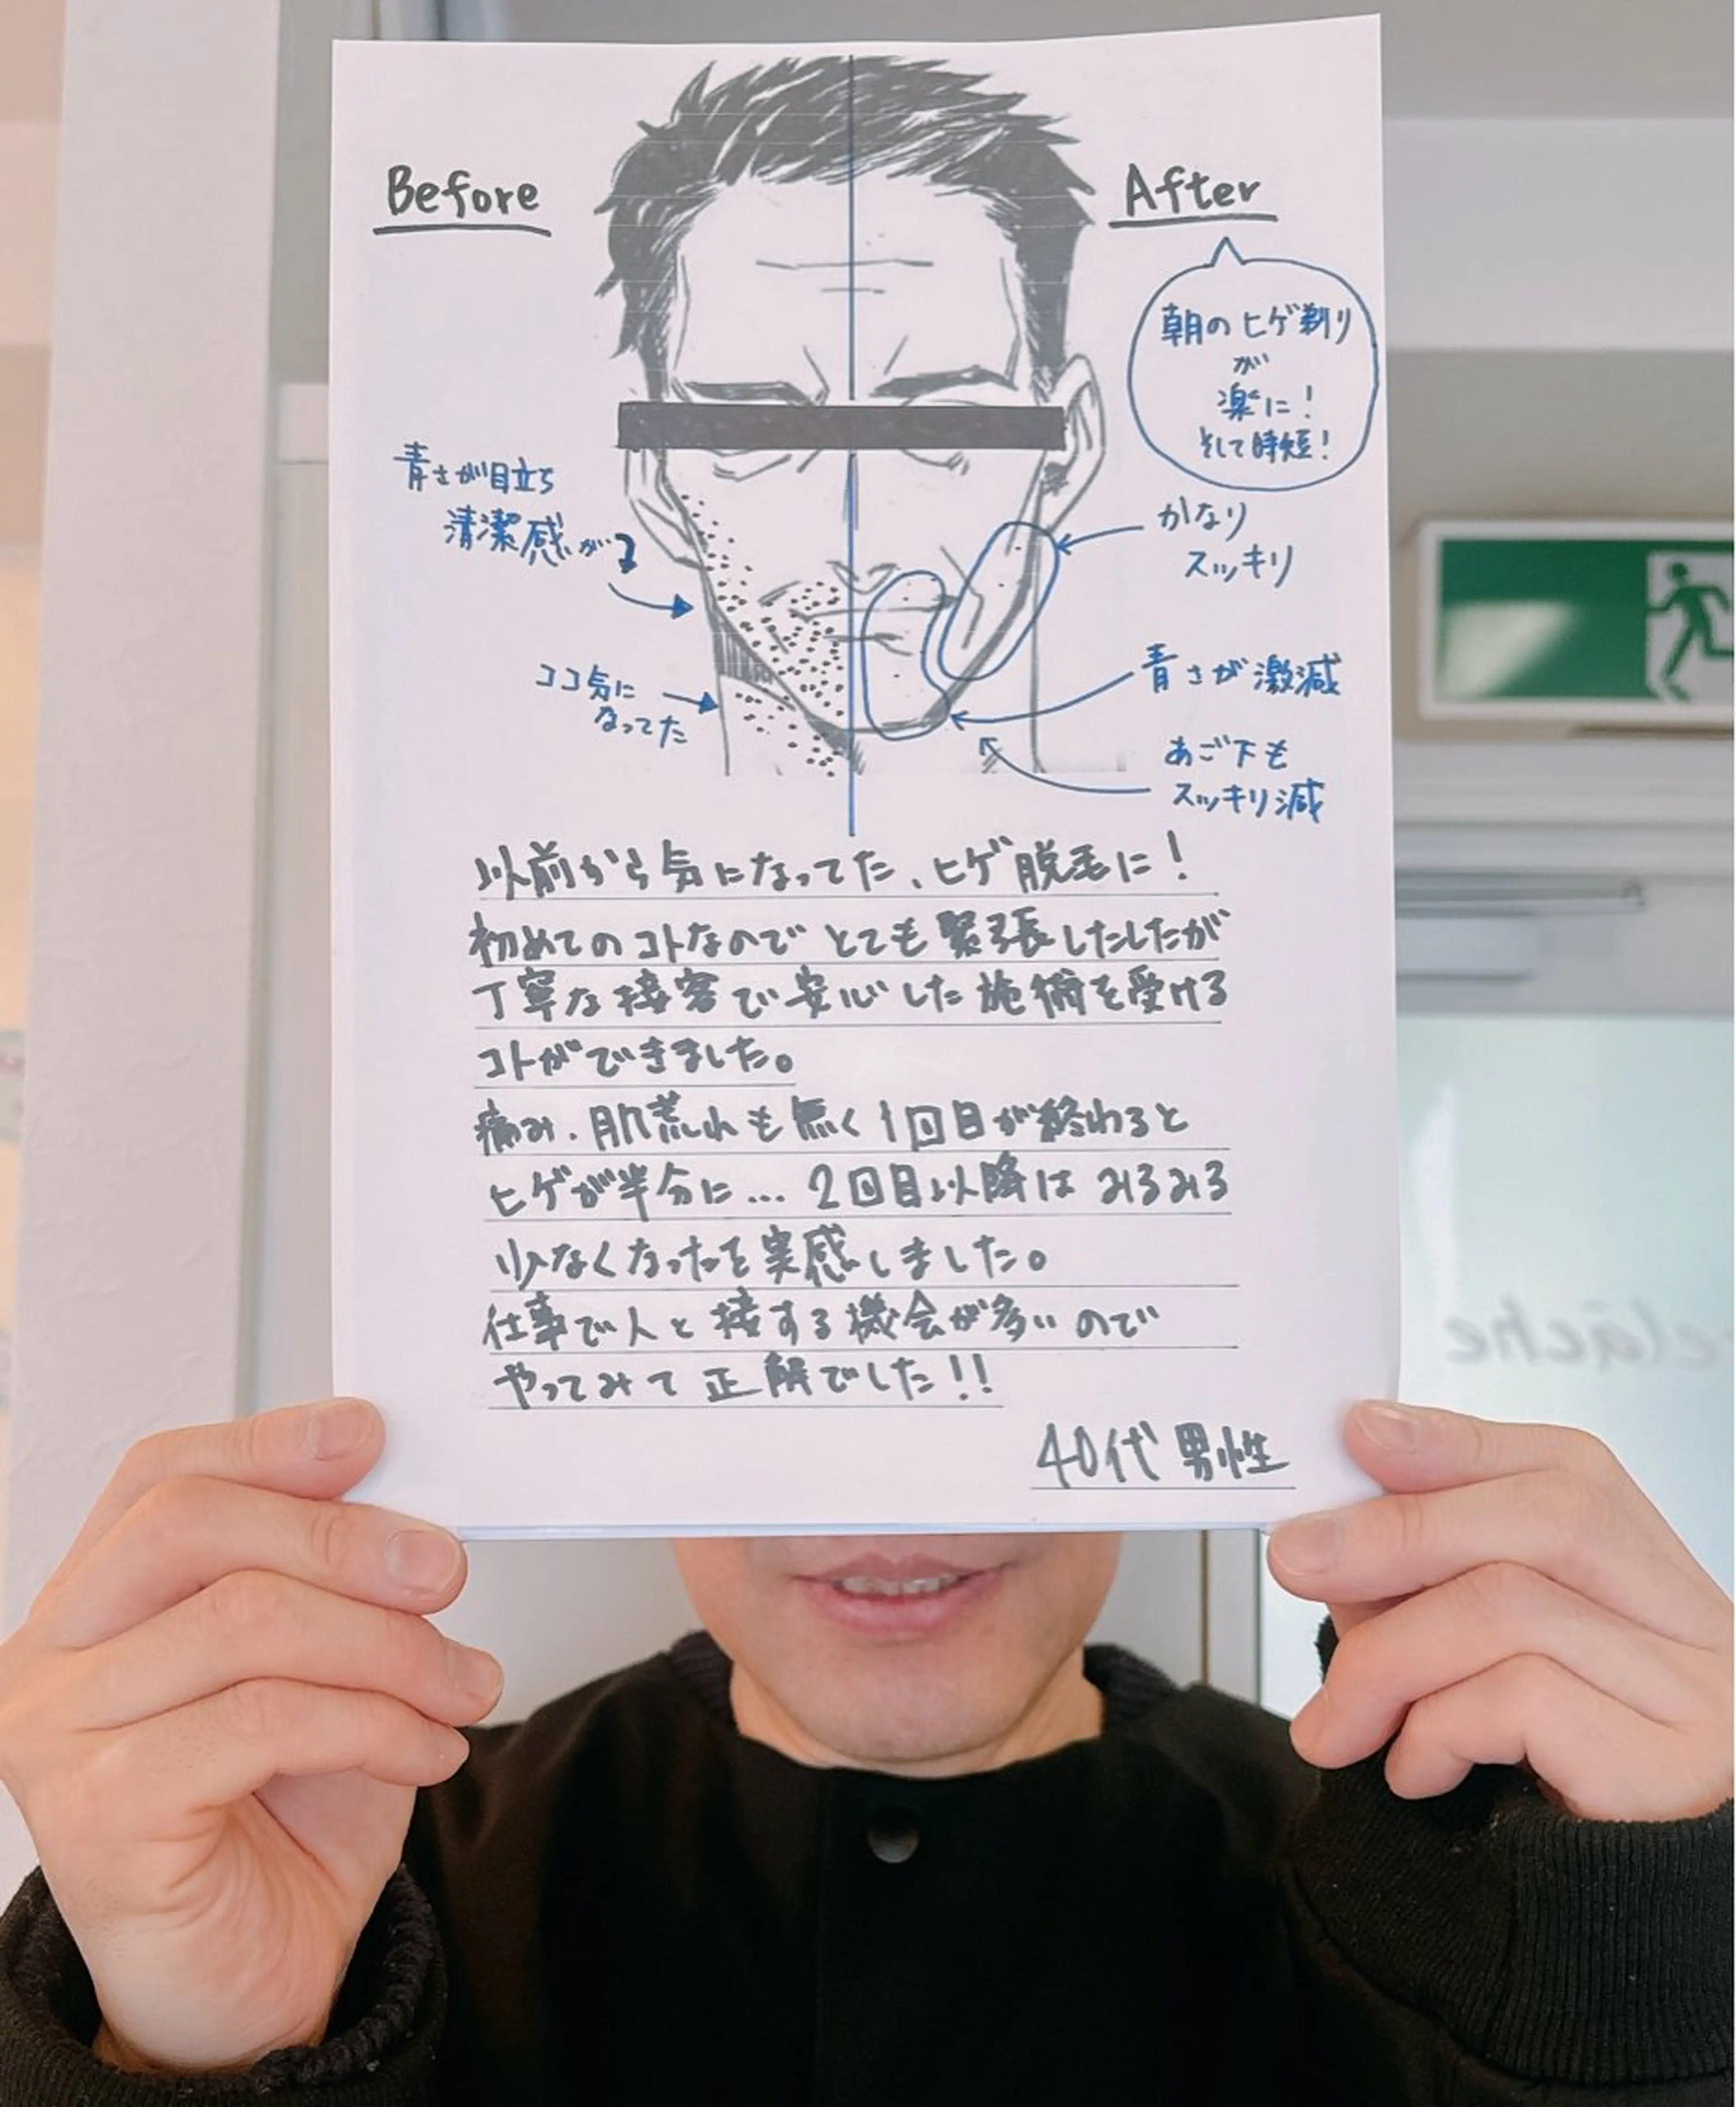 Before
After
朝のヒゲ剃り
が
楽に!
そして時短!
青さが目立ち
清潔感が
かなり
スッキリ
ココ気に
なってた
青さが激減
あご下も
スッキリ減
以前から気になってた、ヒゲ脱毛に!
初めてのコトなのでとても緊張したしたが
丁寧な接客で安心した施術を受ける
コトができました。
痛み、肌荒れも無く1回目が終わると
ヒゲが半分に…2回目以降はみるみる
少なくなったを実感しました。
仕事で人と接する機会が多いので
やってみて正解でした!!
40代男性
relâche